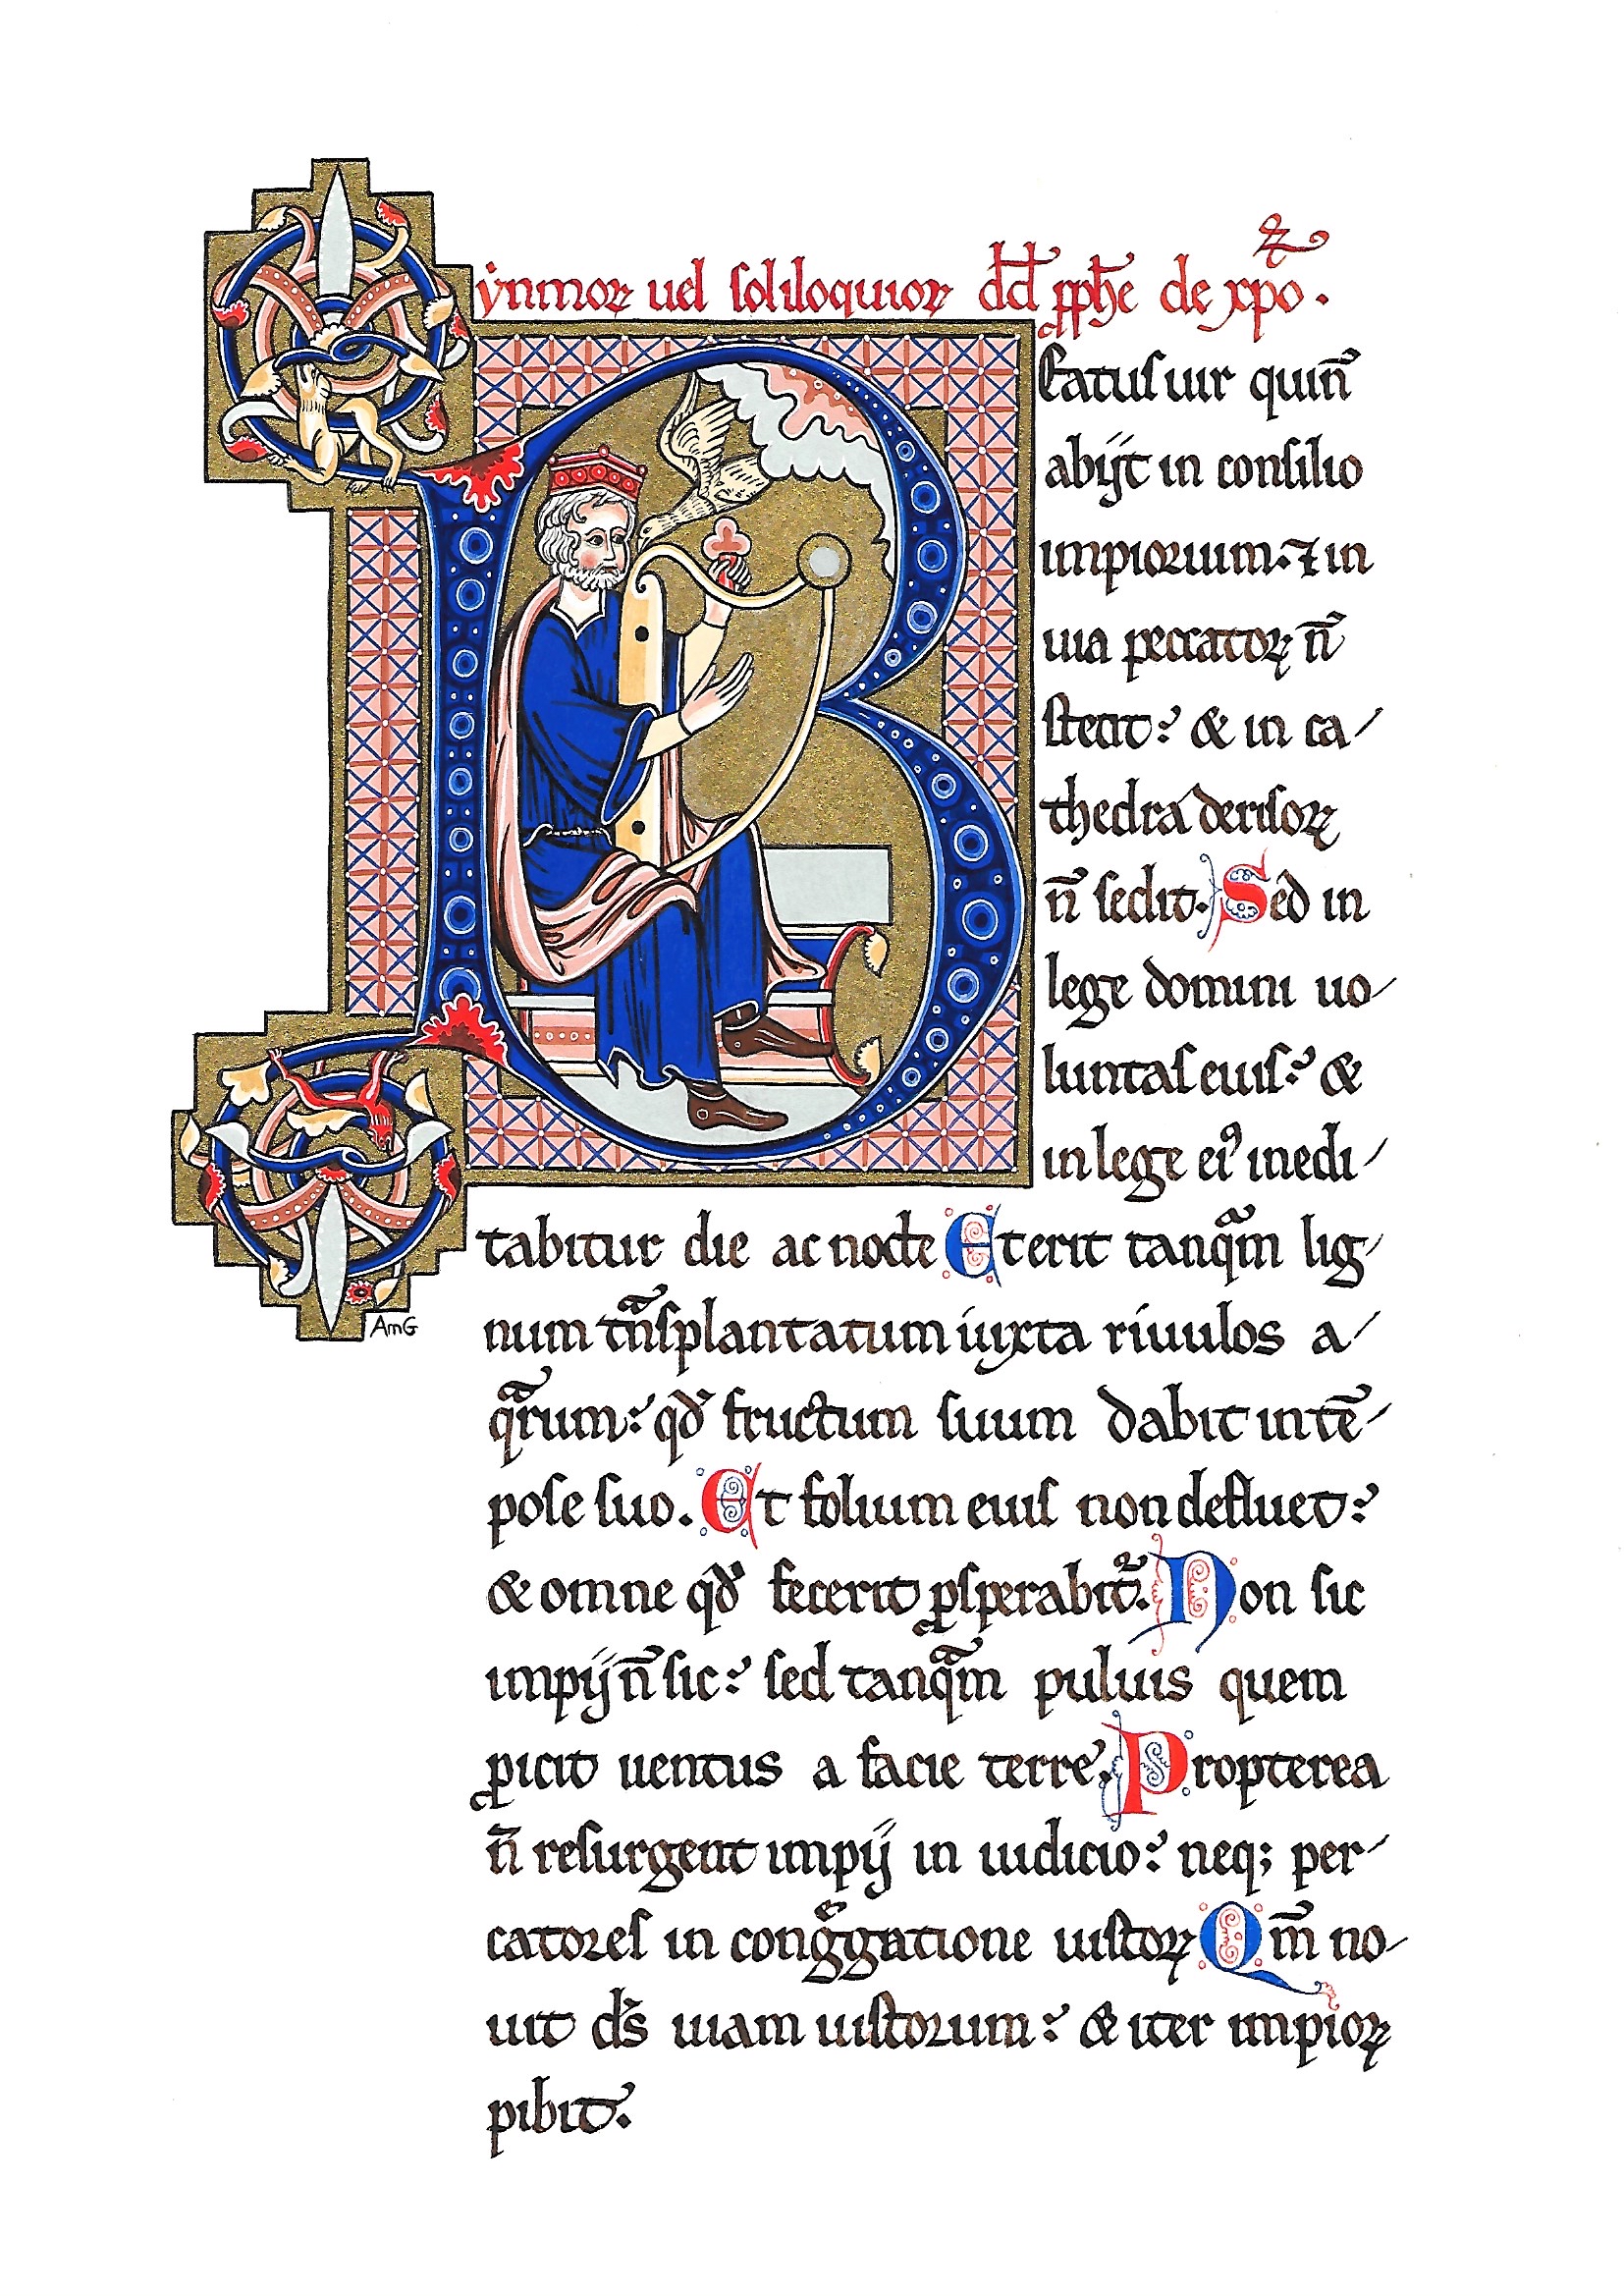 ẏnmoꝝ uel ſoliloquioꝝ dd̄ ꝓph̄e de xp̄o ⁊.
Beatuſ uir qui n̄
abijt in conſilio
impiorum. ⁊ in
uia peccatoꝝ n̄
ſtetit? & in ca-
thedra deriſoꝝ
n̄ ſedit. Sed in
lege domini uo-
luntaſ eiuſ? &
in lege eiꝰ medi-
tabitur die ac nocte Et erit tanqᷓm lig-
num tᷓnſplantatum iuxta riuulos a-
qᷓrum? qd̓ fructum ſuum dabit in tē-
poſe ſuo. Et folium eiuſ non defluet?
& omne qd̓ fecerit ꝓſperabit᷑. Non sic
impij n̄ sic? ſed tanqᷓm puluis quem
ꝓicit uentus a facie terre. Propterea
n̄ reſurgent impij in iudicio? neq; pec-
catoreſ in congͤgatione iuſtoꝝ Qm̄ no-
uit dn̄s uiam iuſtorum? & iter impioꝝ
pibit.
AmG